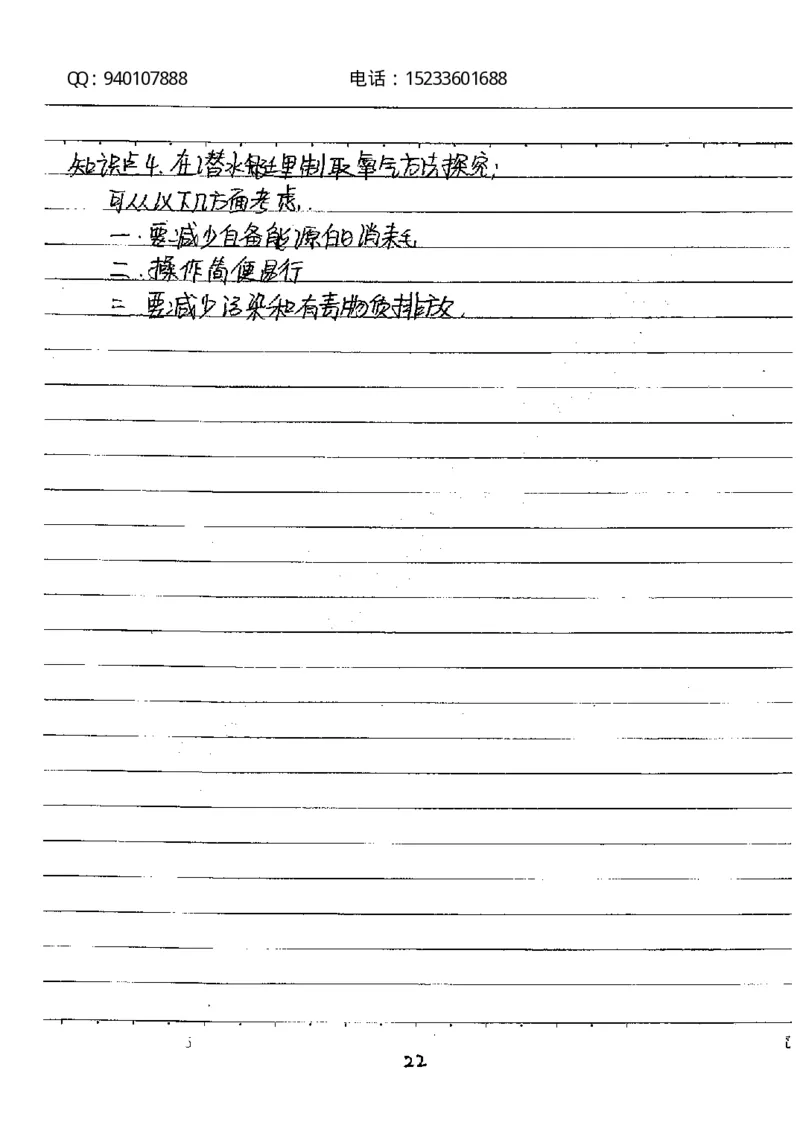 QQ：940107888 电话：15233601688
知识点4. 在潜水艇里制取氧气方法探究；
可从以下几方面考虑.
一. 要减少自备能源的消耗
二. 操作简便易行
三 要减少污染和有毒物质排放.
22